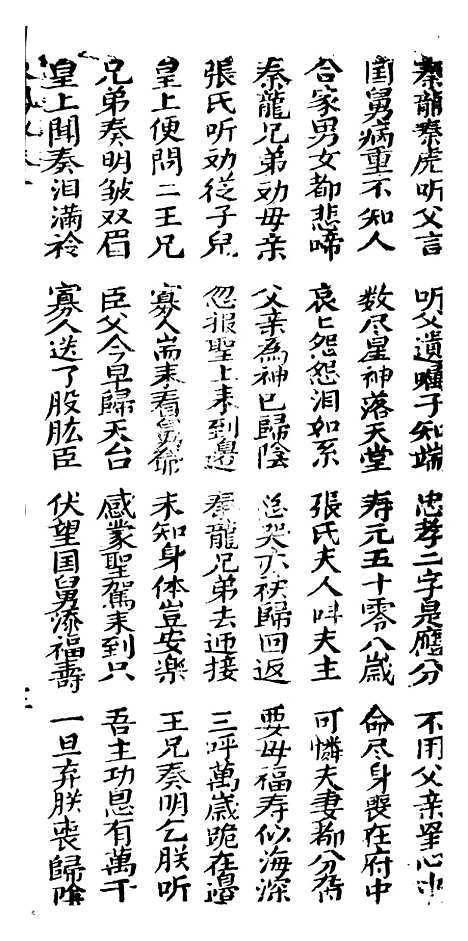 秦龍秦虎听父言 听父遺嘱子知端 忠孝二字是應分 不用父亲挐心中
国舅病重不知人 数尽星神落天堂 寿元五十零八歲 命尽身喪在府中
合家男女都悲啼 哀匕怨怨泪如系 張氏夫人叫夫主 可憐夫妻都分有
秦龍兄弟劝母亲 父亲為神已歸陰 哭亦袂歸回返 要母福寿似海深
張氏听劝從子兒 忽报聖上来到邊 秦龍兄弟去迎接 三呼萬歲跪在邉
皇上便問二王兄 寡人耑来看舅爺 未知身体豈安樂 王兄奏明乞朕听
兄弟奏明皱双眉 臣父今早歸天台 感蒙聖駕来到只 吾主功恩有萬千
皇上聞奏泪满衿 寡人送了股肱臣 伏望国舅添福壽 一旦弃朕喪歸陰